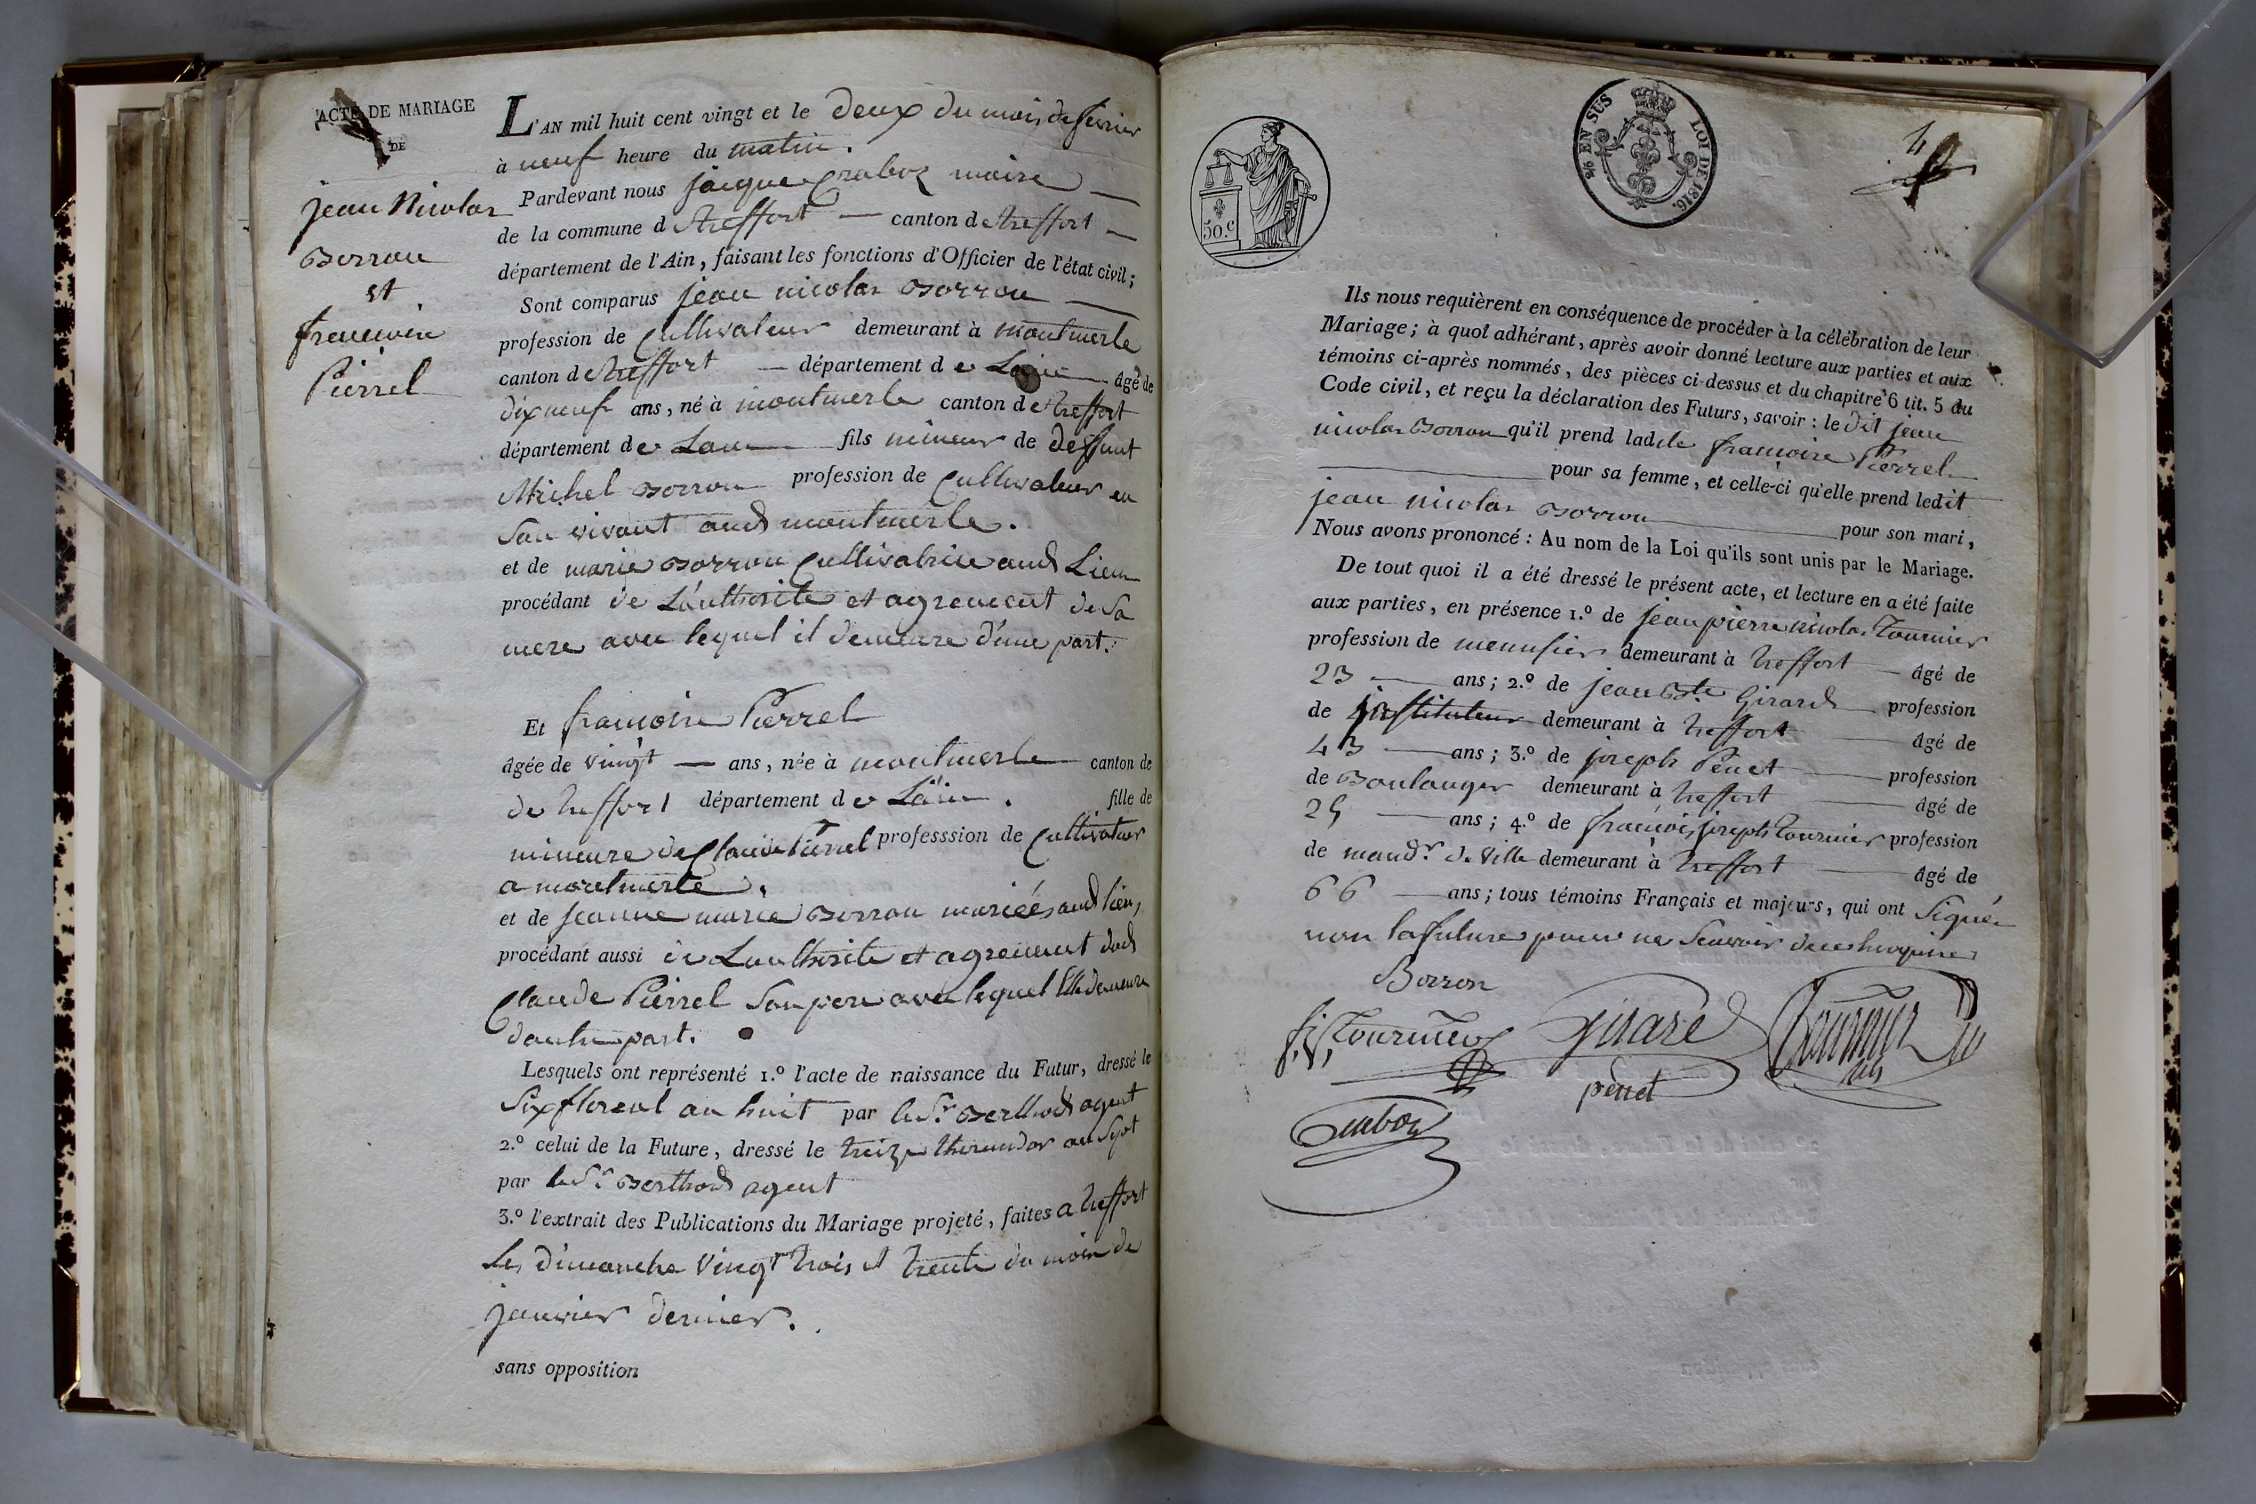 ACTE DE MARIAGE
DE
jean Nicolas
Borron
et
francoise
Pierrel
L'AN mil huit cent vingt et le deux du mois de fevrier
à neuf heure du matin.
Pardevant nous jacque Craboz maire
de la commune d treffort canton de treffort
département de l'Ain, faisant les fonctions d'Officier de l'état civil;
Sont comparus jean nicolas Borron
profession de Cultivateur demeurant à montmerle
canton de treffort département de Lain agé de
dixneuf ans, né à montmerle canton de treffort
département de Lain fils mineur de deffunt
Michel Borron profession de Cultivateur en
Son vivant aud montmerle.
et de marie Borron Cultivatrice aud Lieu
procédant de Lauthorité et agrement de Sa
mere avec lequel il demeure d'une part.
Et francoise Pierrel
agée de vingt ans, née à montmerle canton de
de treffort département de Lain. fille de
mineure de Claude Pierrel professsion de Cultivateur
a montmerle.
et de jeanne marie Borron mariés aud lieu,
procédant aussi de Lauthorité et agrement dud
Claude Pierrel Son pere avec lequel Elle demeure
dautre part.
Lesquels ont représenté 1.º l'acte de naissance du Futur, dressé le
Six floreal an huit par le Sr. Berthod agent
2.º celui de la Future, dressé le treize thermidor an Sept
par le Sr. Berthod agent
3.º l'extrait des Publications du Mariage projeté, faites a treffort
les dimanche vingt trois et trente du mois de
janvier dernier.
sans opposition
50.c
EN SUS
LOI DE 1816.
4
Ils nous requièrent en conséquence de procéder à la célébration de leur
Mariage; à quoi adhérant, après avoir donné lecture aux parties et aux
témoins ci-après nommés, des pièces ci-dessus et du chapitre 6 tit. 5 du
Code civil, et reçu la déclaration des Futurs, savoir: le dit jean
nicolas Borron qu'il prend ladite francoise Pierrel
pour sa femme, et celle-ci qu'elle prend ledit
jean nicolas Borron pour son mari,
Nous avons prononcé: Au nom de la Loi qu'ils sont unis par le Mariage.
De tout quoi il a été dressé le présent acte, et lecture en a été faite
aux parties, en présence 1.º de jean pierre nicolas Tournier
profession de menusier demeurant à treffort agé de
23 ans; 2.º de jean Bte Girard profession
de instituteur demeurant à treffort agé de
43 ans; 3.º de joseph Penet profession
de Boulanger demeurant à treffort agé de
25 ans; 4.º de francois joseph Tournier profession
de mandr. de ville demeurant à treffort agé de
66 ans; tous témoins Français et majeurs, qui ont Signé
non la future pour ne Scavoir de ce enquise
Borron
f. j. Tournier Girard Tournier
penet
Craboz